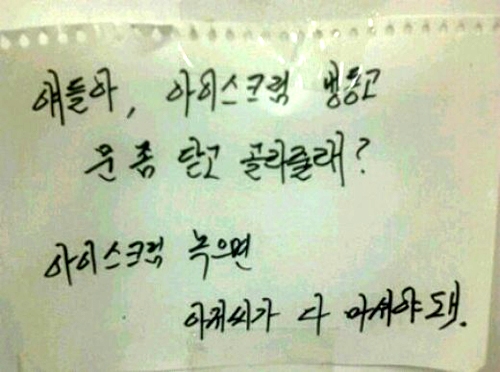 얘들아, 아이스크림 냉동고
문 좀 닫고 골라줄래?
아이스크림 녹으면
아저씨가 다 마셔야 돼.